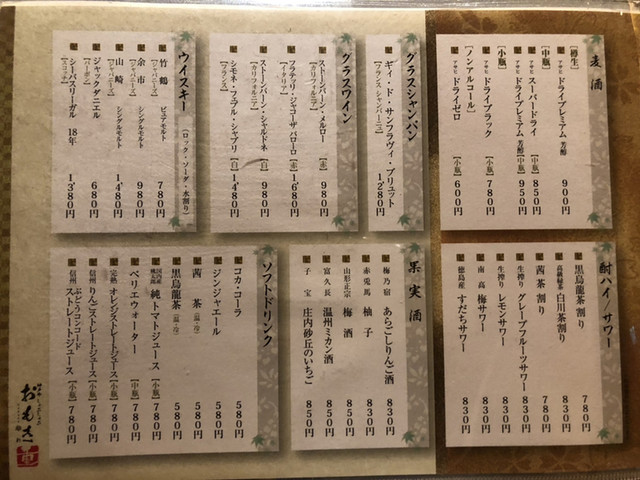 麦酒
【樽生】
アサヒ ドライプレミアム 芳醇 900円
【中瓶】
アサヒ スーパードライ 【中瓶】 850円
アサヒ ドライプレミアム 芳醇 【中瓶】 950円
【小瓶】
アサヒ ドライブラック 【小瓶】 780円
【ノンアルコール】
アサヒ ドライゼロ 【小瓶】 600円
グラスシャンパン
ギィ・ド・サンフラヴィ・ブリュット
【フランス シャンパーニュ】 1280円
グラスワイン
ストーンバーン・メルロー 【赤】 980円
【カリフォルニア】
フラテッリ・ジャコーザバローロ 【赤】 1680円
【イタリア】
ストーンバーン・シャルドネ 【白】 980円
【カリフォルニア】
シモネ・フェブル・シャブリ 【白】 1480円
【フランス】
ウイスキー (ロック・ソーダ・水割り)
竹鶴 ピュアモルト 780円
【ジャパニーズ】
余市 シングルモルト 980円
【ジャパニーズ】
山崎 シングルモルト 1480円
【ジャパニーズ】
ジャックダニエル 680円
【バーボン】
シーバスリーガル 18年 1380円
【スコッチ】
酎ハイ/サワー
黒烏龍茶割り 780円
白川茶割り 830円
茜茶割り 780円
生搾り グレープフルーツサワー 830円
生搾り レモンサワー 830円
南高 梅サワー 830円
徳島産 すだちサワー 830円
果実酒
梅乃宿 あらごしりんご酒 830円
赤兎馬 柚子 830円
山形正宗 梅酒 850円
富久長 温州ミカン酒 850円
子宝 庄内砂丘のいちご 850円
ソフトドリンク
コカ・コーラ 580円
ジンジャエール 580円
茜茶 【温・冷】 580円
黒烏龍茶 【温・冷】 580円
純トマトジュース 【小瓶】 780円
ペリエウォーター 【中瓶】 780円
完熟 オレンジストレートジュース 【小瓶】 780円
信州 りんごストレートジュース 【小瓶】 780円
信州 ぶどうコンコード
ストレートジュース 【小瓶】 780円
おもき